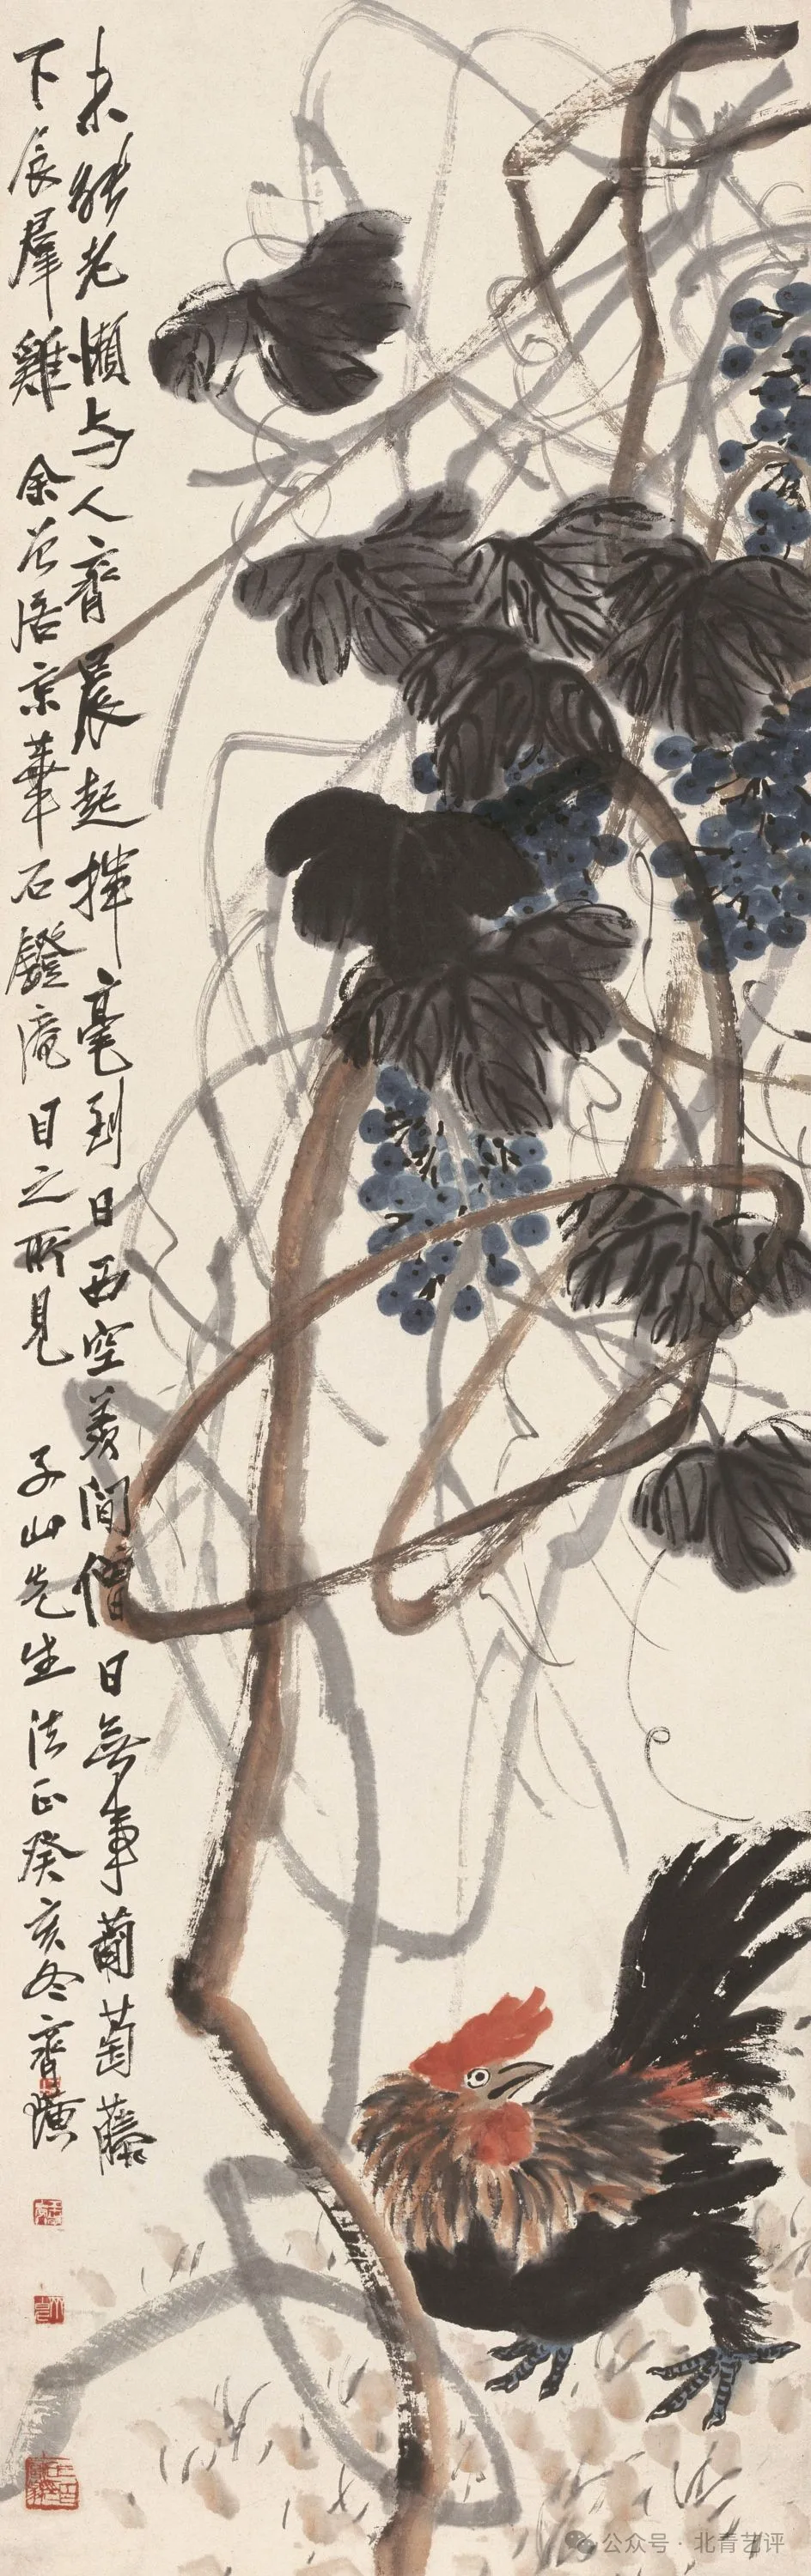 未能老懒与人齐晨起挥毫到日西空羡闲僧日无事葡萄藤
下辰群雞 余曾居京華石鐙庵目之所見 子山先生法正癸亥冬齊璜
公众号·北青艺评